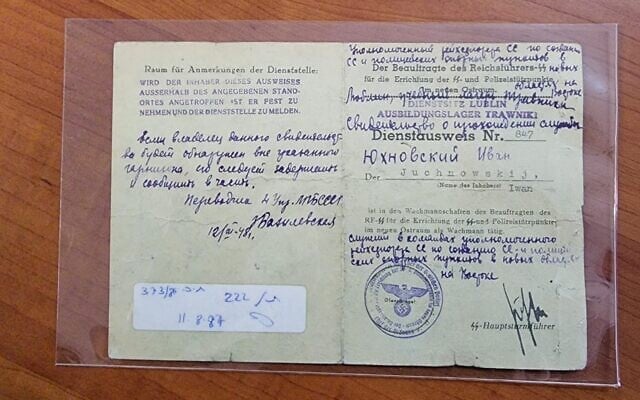 Raum für Anmerkungen der Dienststelle:
WIRD DER INHABER DIESES AUSWEISES
AUSSERHALB DES ANGEGEBENEN STAND-
ORTES ANGETROFFEN IST ER FEST ZU
NEHMEN UND DER DIENSTSTELLE ZU MELDEN.
Если владелец данного свидетельст-
ва будет обнаружен вне указанного
гарнизона, его следует задержать
и сообщить в часть.
Переводила
Василевская
373/86
222
11.8.87
уполномоченный рейхсфюрера СС по созданию
СС и полицейских опорных пунктов в новых
Der Beauftragte des Reichsführers-SS
für die Errichtung der SS- und Polizeistützpunkte
im neuen Ostraum
областях на Востоке
Люблин, учебный лагерь Травники
DIENSTSITZ LUBLIN
AUSBILDUNGSLAGER TRAWNIKI
Свидетельство о прохождении службы
Dienstausweis Nr. 847
Юхновский Иван
Der Juchnowskij,
(Name des Inhabers) Iwan
ist in den Wachmannschaften des Beauftragten des
RF-SS für die Errichtung der SS- und Polizeistützpunkte
im neuen Ostraum als Wachmann tätig.
служит в командах уполномоченного
рейхсфюрера СС по созданию СС и полицей-
ских опорных пунктов в новых областях
на Востоке
Dienstsiegel
SS-Hauptsturmführer